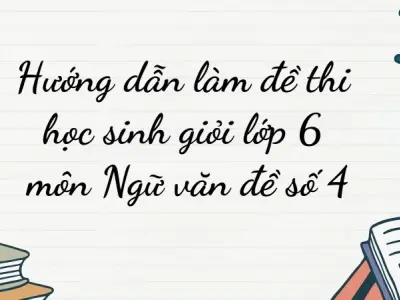 Hướng dẫn làm đề thi
học sinh giỏi lớp 6
môn Ngữ văn đề số 4